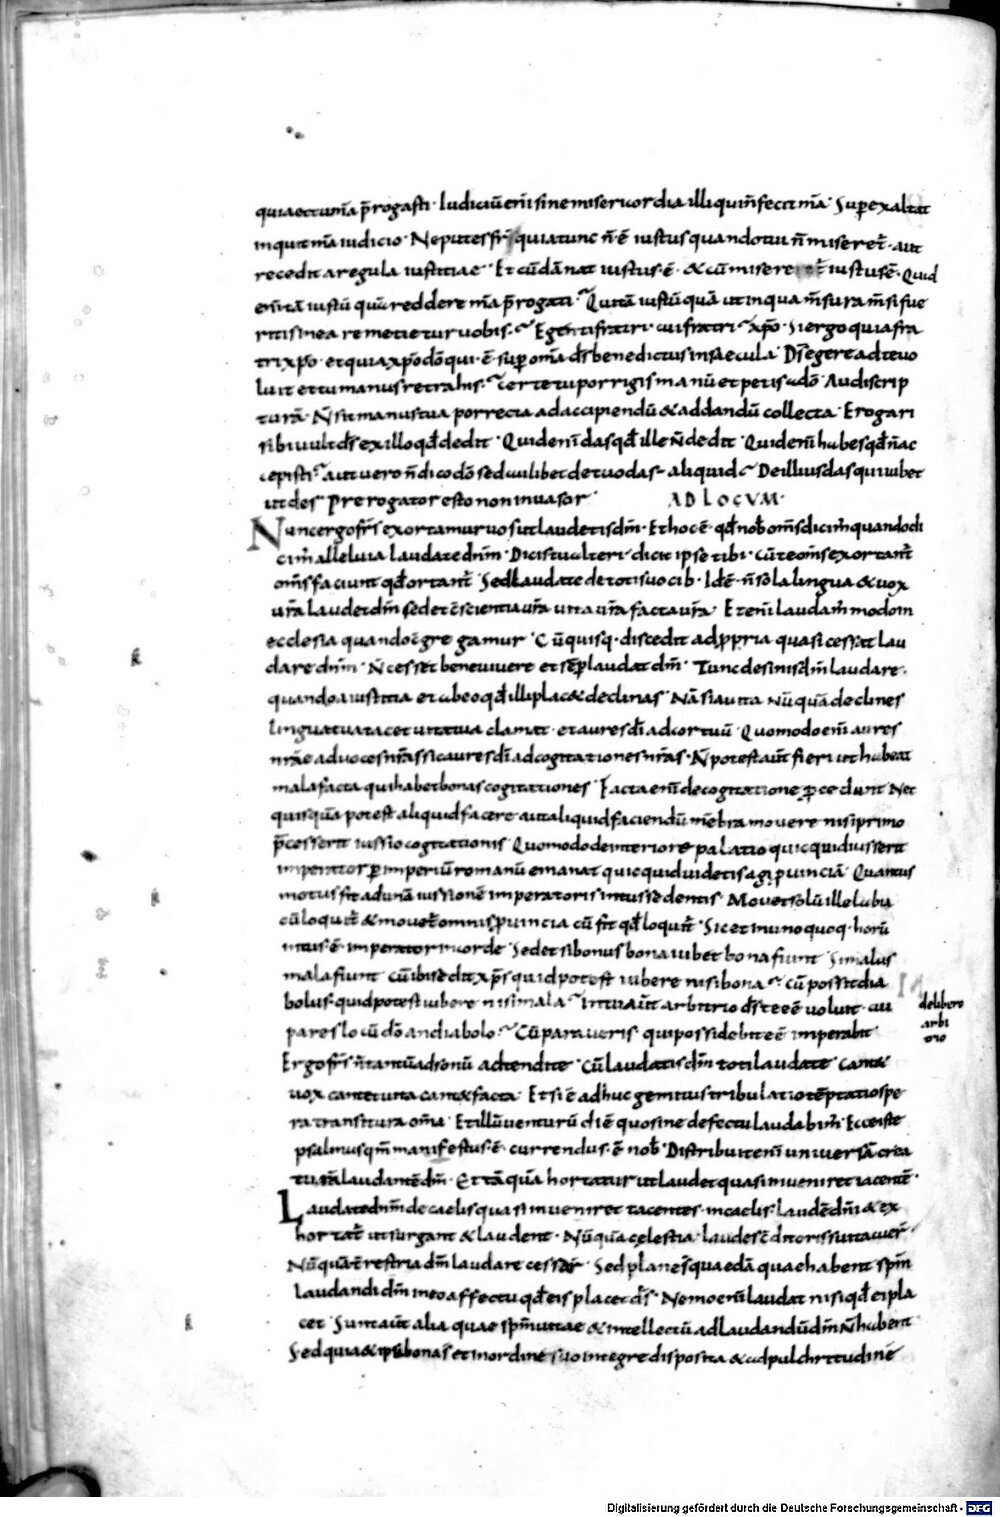 quia et tu mīa p̄rogasti · Iudiciū enī sine misericordia illi qui n̄ fecit mīa · Superexaltat
inquit mīa iudicio · Ne putes fr̄s quia tunc n̄ ē iustus quando tui n̄ miseret̄ · aut
recedit a regula iustitiae · Et cū dānat iustus ē · & cū misere et̄ iustus ē · Quid
enī tā iustū quā reddere mīa p̄rogati · Quid tā iustū quā ut in qua m̄sura m̄si fue
ritis in ea remetietur uobis · Egenti fratri · cui fratri · xp̄o · Si ergo quia fra
tri xp̄o · et quia xp̄o dō qui · ē · sup̄ om̄a d̄s benedictus in saecula · D̄s egere ad te uo
luit et tu manus retrahis · certe tu porrigis manū et petis a dō · Audi scrip
turā · N̄ sit manus tua porrecta ad accipiendū & ad dandū collecta · Erogari
sibi uult d̄s ex illo qd̄ dedit · Quid enī das qd̄ ille n̄ dedit · Quid enī habes qd̄ n̄ ac
cepisti · aut uero n̄ dico dō sed cuilibet de tuo das aliquid · De illius das qui iubet
ut des · Prerogator esto non inuasor · AD LOCVM ·
Nunc ergo fr̄s exortamur uos ut laudetis dm̄ · Et hoc ē · qd̄ nob̄ om̄s dicim̄ quando di
cim̄ alleluia laudate dn̄m · Dicis tu alteri · dicit ipse tibi · cū te om̄s exortant̄
om̄s faciunt qd̄ ortant̄ · Sed laudate de totis uocib · Id ē · n̄ sola lingua & uox
ur̄a laudet dm̄ sed et c̄scientia ur̄a uita ur̄a facta ur̄a · Etenī laudam̄ modo in
ecclesia quando c̄gregamur · Cū quisq · discedit ad p̄pria quasi cessat lau
dare dn̄m · N̄ cesset bene uiuere et sēp laudat dm̄ · Tunc desinis dm̄ laudare ·
quando a iustitia et ab eo qd̄ illi plac& declinas · Nā si a uita nūquā declines
lingua tua tacet uita tua clamat · et aures dī ad cor tuū · Quomodo enī aures
nr̄ae ad uoces nr̄as sic aures dī ad cogitationes nr̄as · N̄ potest aut̄ fieri ut habeat
mala facta qui habet bonas cogitationes · Facta enī de cogitatione p̄cedunt · Nec
quisquā potest aliquid facere aut ad aliquid faciendū mēbra mouere nisi primo
p̄cesserit iussio cogitationis · Quomodo de interiore palatio quicquid iusserit
imperator p̄ imperiū romanū emanat quicquid uidetis agi p̄ prouinciā · Quantus
motus fit ad unā iussionē imperatoris intus sedentis · Mouet solū ille labia
cū loquit̄ & mouet̄ omnis p̄uincia cū fit qd̄ loquit̄ · Sic et in uno quoq · horū
intus ē imperator in corde · Sedet si bonus bona iubet bona fiunt · Si malus
mala fiunt · Cū ibi sedit xp̄s quid potest iubere nisi bona · cū possit dia
bolus · quid potest iubere nisi mala · In tuo aut̄ arbitrio d̄s te eē uoluit · cui
pares locū dō an diabolo · Cū paraueris · qui possidebit eē imperabit
Ergo fr̄s n̄ tantū ad sonū adtendite · Cū laudatis dm̄ toti laudate · Cant&
uox cantet uita cant& facta · Et si ē adhuc gemitus tribulatio tēptatio spe
ra transitura om̄a · Et illū uenturū diē quo sine defectu laudabim̄ · Ecce iste
psalmus qm̄ manifestus ē · currendus · ē nob̄ · Distribuit enī uniuersā crea
turā laudantē dm̄ · Et tā quā hortatur ut laudet quasi inueniret tacentē ·
Laudate dn̄m de caelis quasi inueniret tacentes · in caelis · laudē dn̄i & ex
hortat̄ ut surgant & laudent · Nūquā celestia · laudes c̄ditoris sui tacuer̄ ·
Nūquā terrestria dm̄ laudare cessar̄ · Sed plane s̄ quaedā quae habent spm̄
laudandi dm̄ in eo affectu qd̄ eis placet d̄s · Nemo enī laudat nisi qd̄ ei pla
cet · Sunt aut̄ alia quae spm̄ uitae & intellectū ad laudandū dm̄ n̄ habent
Sed quia & ipsi bona s̄ et in ordine suo integre disposita & ad pulchritudinē
de libero
arbi
trio
Digitalisierung gefördert durch die Deutsche Forschungsgemeinschaft - DFG